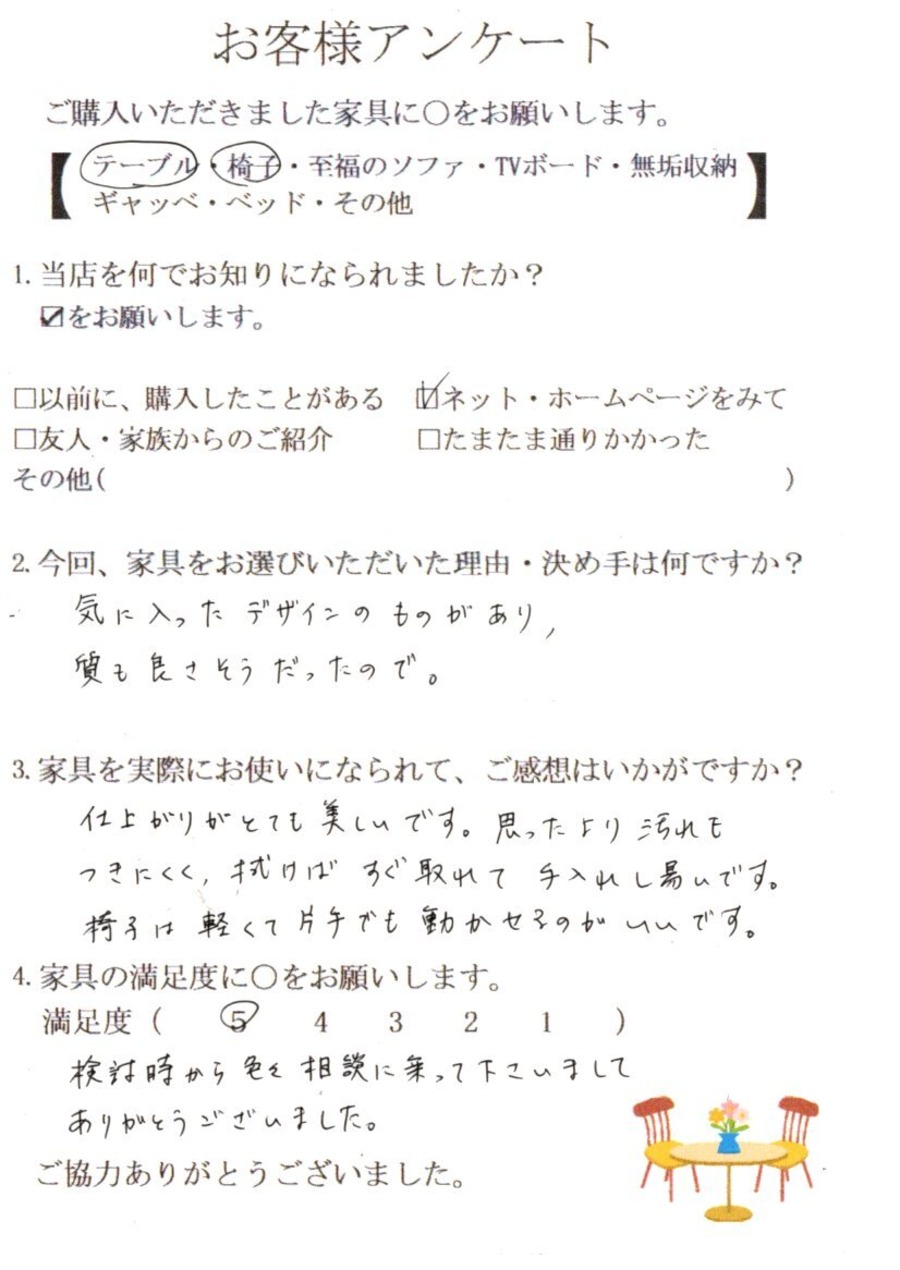 お客様アンケート
ご購入いただきました家具に〇をお願いします。
【テーブル・椅子・至福のソファ・TVボード・無垢収納
ギャッベ・ベッド・その他】
1. 当店を何でお知りになられましたか？
☑をお願いします。
□以前に、購入したことがある　☑ネット・ホームページをみて
□友人・家族からのご紹介　□たまたま通りかかった
その他(　)
2. 今回、家具をお選びいただいた理由・決め手は何ですか？
気に入ったデザインのものがあり,
質も良さそうだったので。
3. 家具を実際にお使いになられて、ご感想はいかがですか？
仕上がりがとても美しいです。思ったより汚れも
つきにくく, 拭けばすぐ取れて手入れし易いです。
椅子は軽くて片手でも動かせるのがいいです。
4. 家具の満足度に〇をお願いします。
満足度（　5　4　3　2　1　）
検討時から色々相談に乗って下さいまして
ありがとうございました。
ご協力ありがとうございました。